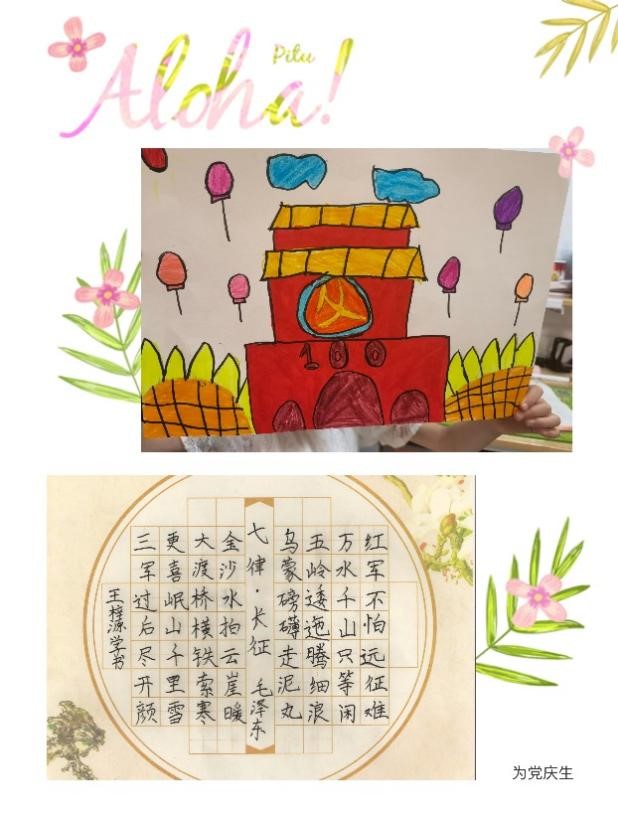 Pitu
Aloha!
100
红军不怕远征难
万水千山只等闲
五岭逶迤腾细浪
乌蒙磅礴走泥丸
七律·长征 毛泽东
金沙水拍云崖暖
大渡桥横铁索寒
更喜岷山千里雪
三军过后尽开颜
王梓源学书
为党庆生